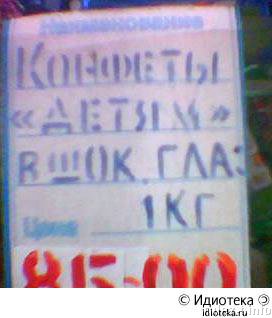 Наименование
КОНФЕТЫ
«ДЕТЯМ»
В ШОК. ГЛАЗ
1КГ
Цена
85-00
© Идиотека Э
idioteka.ru